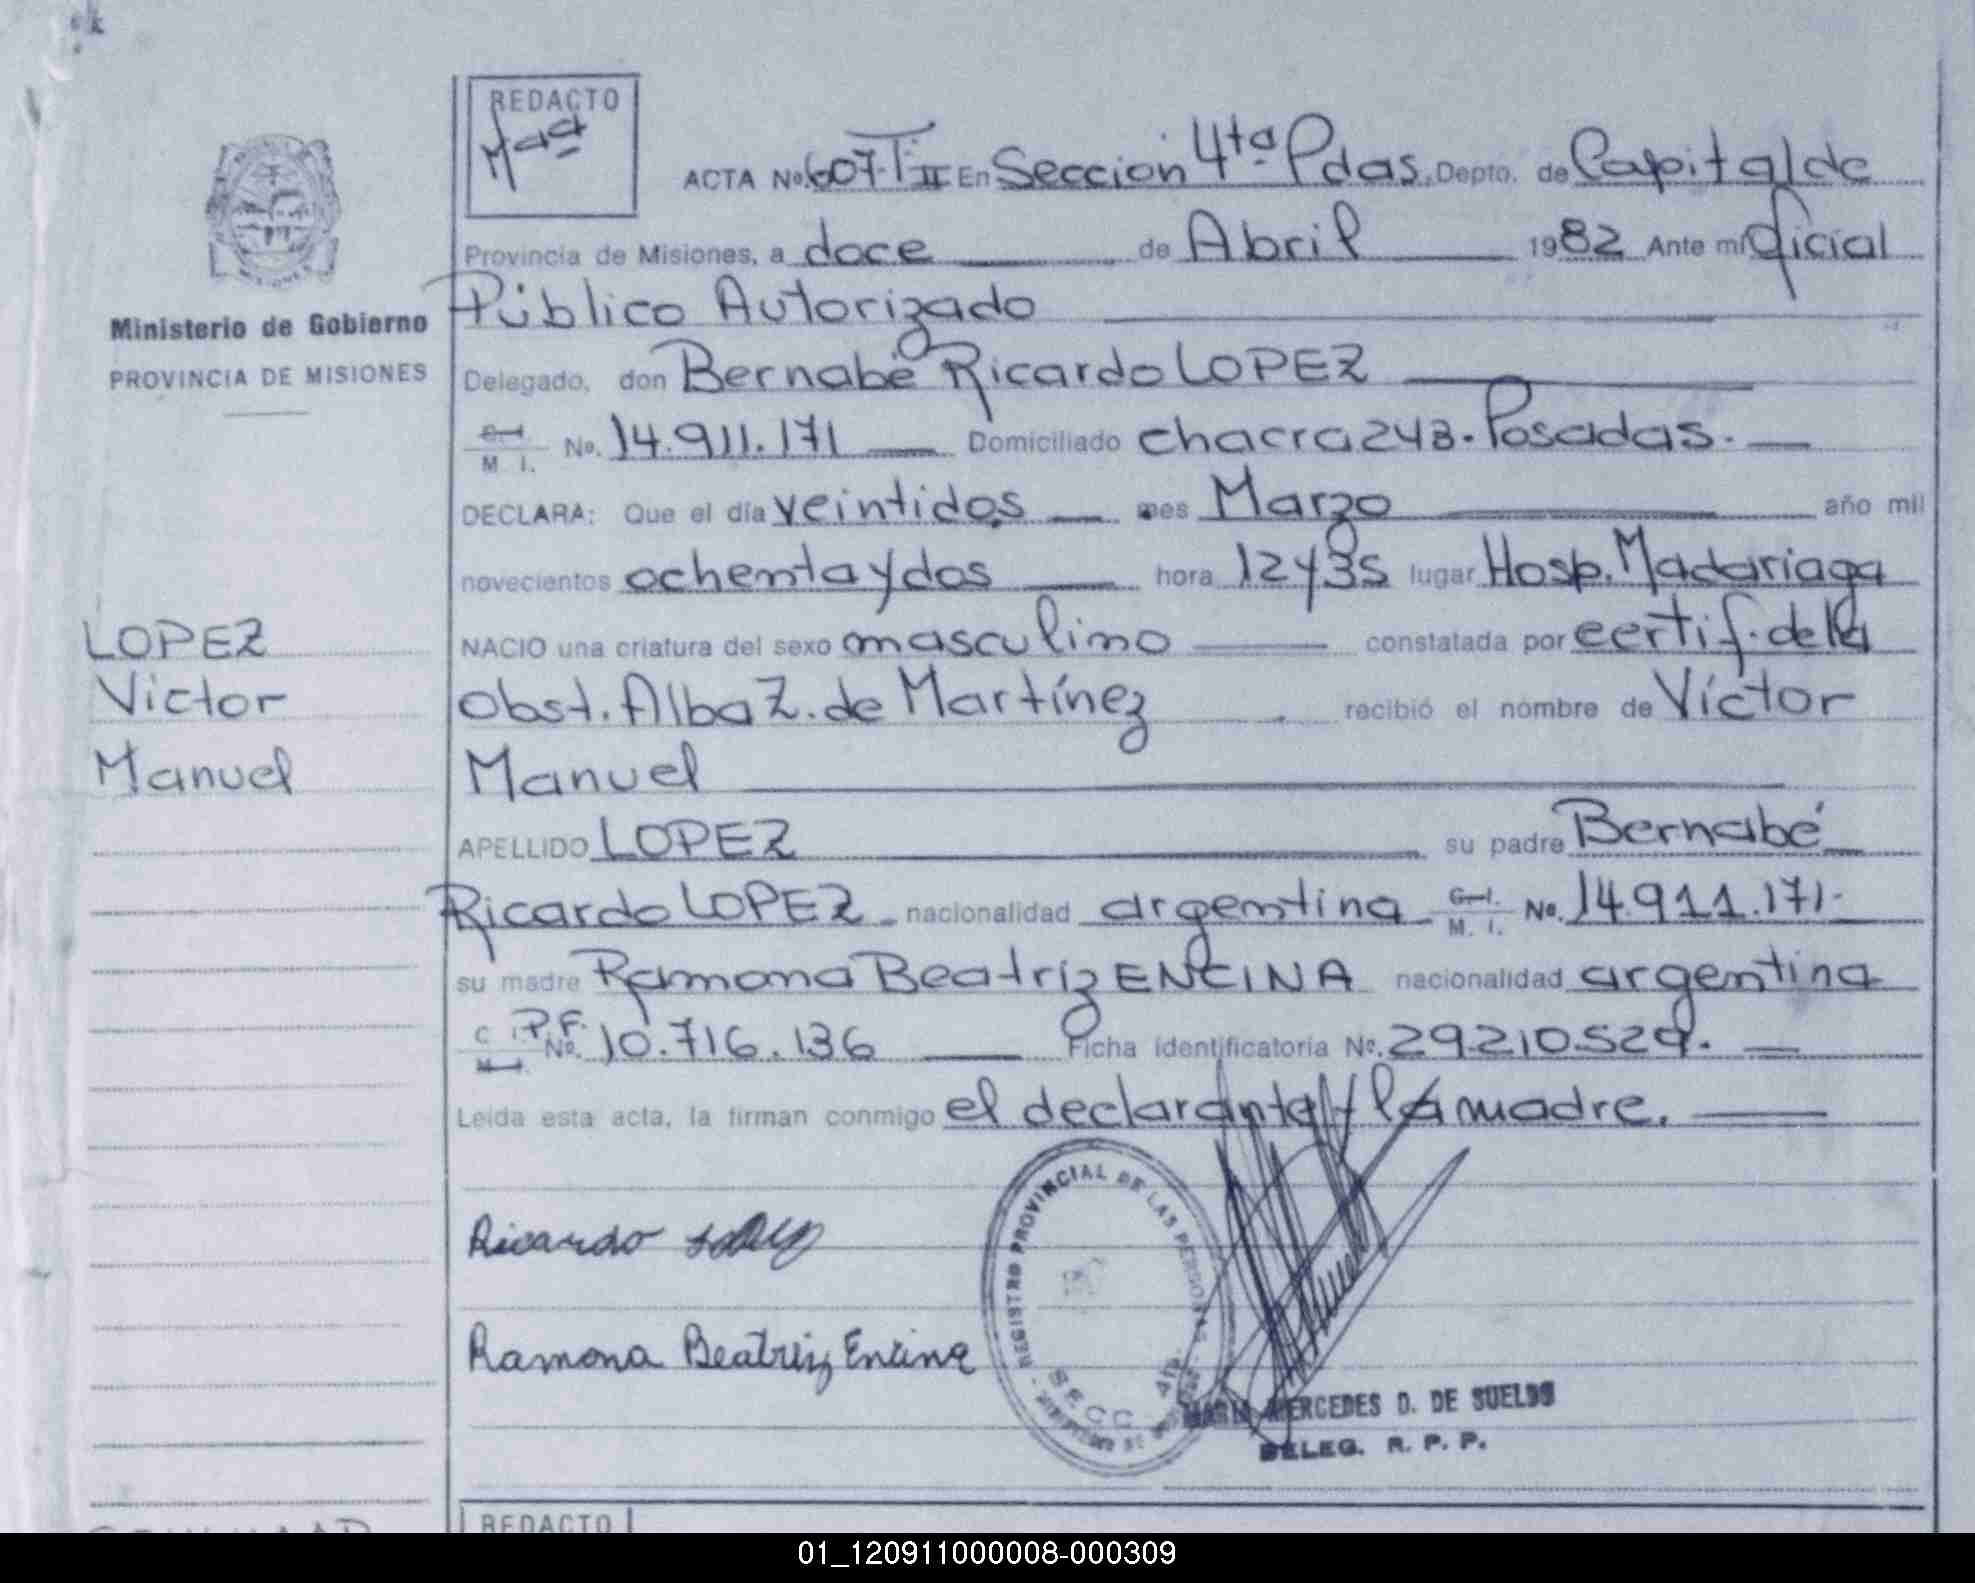 REDACTO
ACTA No. 607. T II En Sección 4ta Pdas. Depto. de Capital de
Provincia de Misiones, a doce de Abril 1982 Ante mí Oficial
Público Autorizado
Ministerio de Gobierno
PROVINCIA DE MISIONES
Delegado, don Bernabé Ricardo LOPEZ
C. I. M. I. No. 14.911.171 Domiciliado chacra 243. Posadas.
DECLARA: Que el día veintidos mes Marzo año mil
novecientos ochenta y dos hora 12 y 35 lugar Hosp. Madariaga
LOPEZ
Victor
Manuel
NACIO una criatura del sexo masculino constatada por certif. de la
Obst. Alba Z. de Martínez recibió el nombre de Víctor
Manuel
APELLIDO LOPEZ su padre Bernabé
Ricardo LOPEZ nacionalidad argentina C. I. M. I. No. 14.911.171.
su madre Ramona Beatríz ENCINA nacionalidad argentina
C. I. P.F. M. I. No. 10.716.136 Ficha identificatoria No. 29210529.
Leída esta acta, la firman conmigo el declarante y la madre.
Ricardo
Ramona Beatriz Encina
REGISTRO PROVINCIAL DE LAS PERSONAS
SECC. 4ta
MARIA MERCEDES D. DE SUELDO
DELEG. R. P. P.
REDACTO
01_120911000008-000309